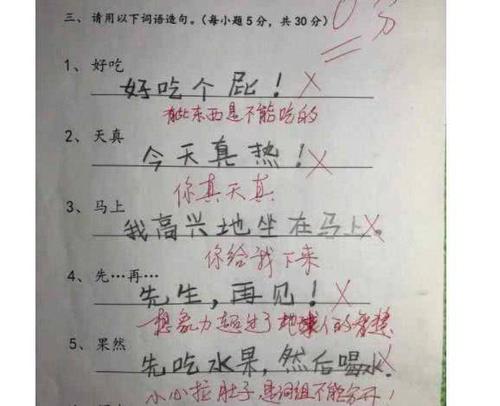 三、请用以下词语造句。(每小题5分，共30分)
0分
1、好吃
好吃个屁！
有些东西是不能吃的
2、天真
今天真热！
你真天真
3、马上
我高兴地坐在马上。
你给我下来
4、先…再…
先生，再见！
想象力超过了地球人的智慧
5、果然
先吃水果，然后喝水。
小心拉肚子 是词组不能分开！